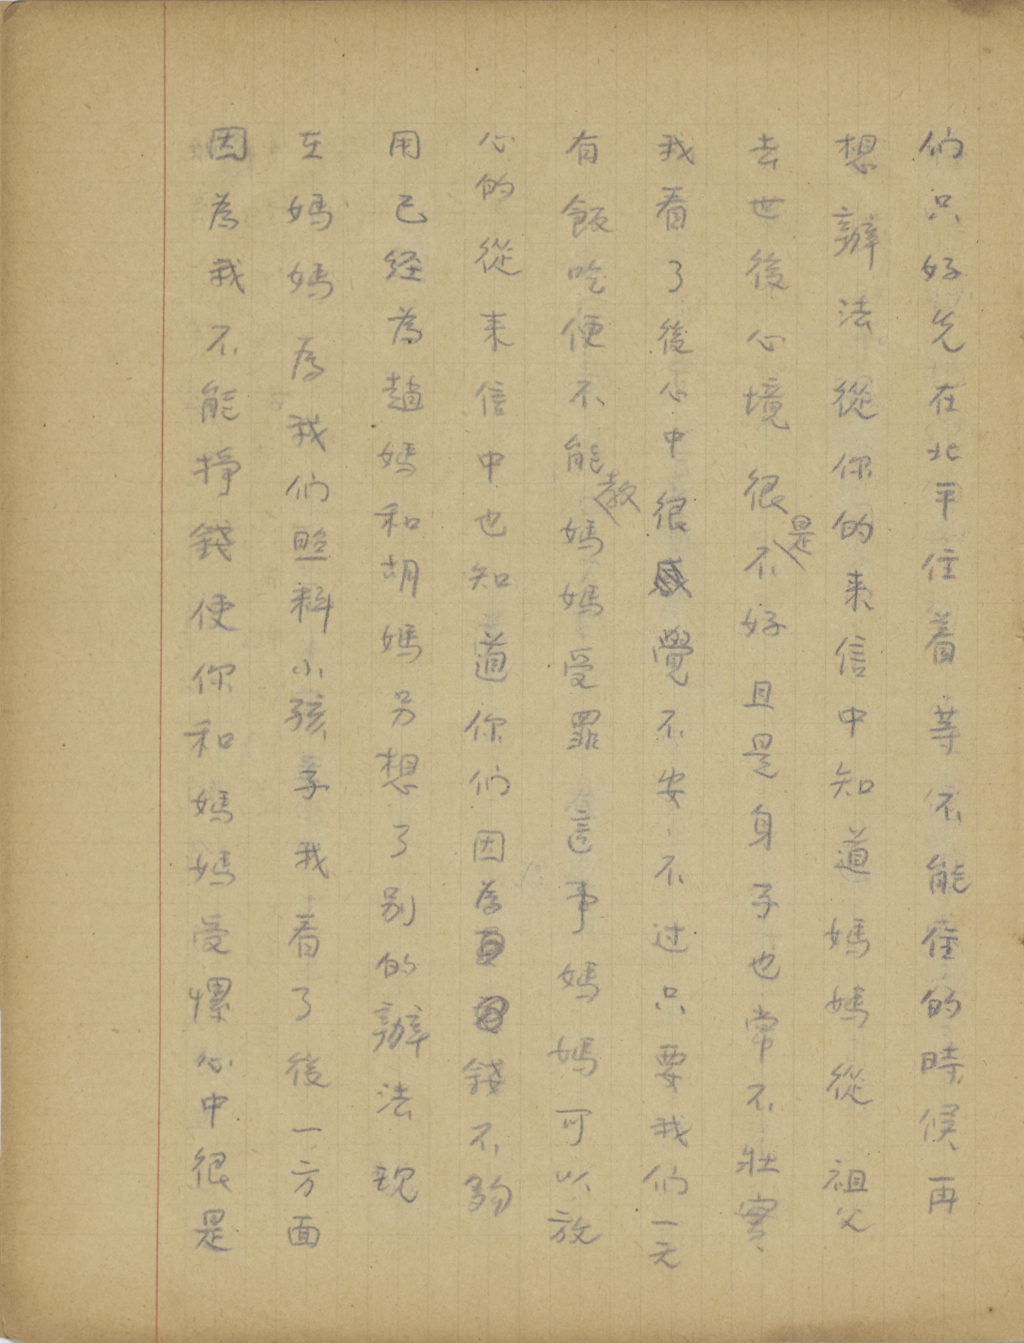 们只好先在北平住着等不能住的時候再
想辦法從你的来信中知道媽媽從祖父
去世後心境很是不好且是身子也常不壯實、
我看了後心中很覺不安、不过只要我们一天
有飯吃便不能教媽媽受罪這事媽媽可以放
心的從来信中也知道你们因為錢不夠
用已经為趙媽和胡媽另想了别的辦法現
在媽媽為我们照料小孩子我看了後一方面
因為我不能掙錢使你和媽媽受慄心中很是